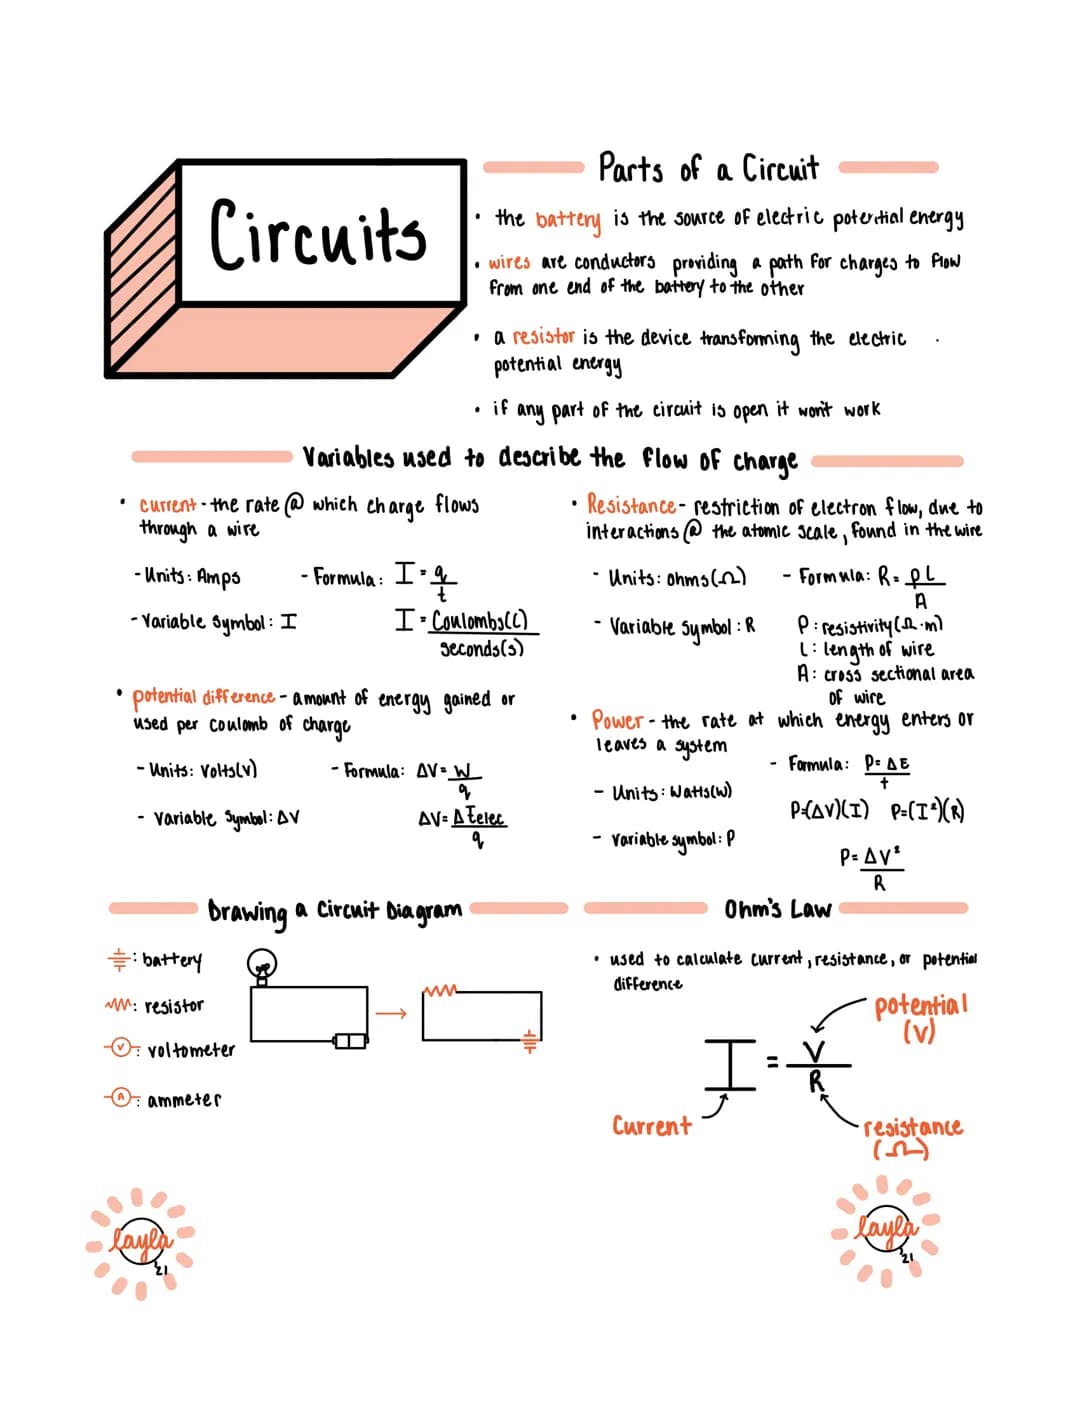 Circuits
Parts of a Circuit
• the battery is the source of electric potential energy
• wires are conductors providing a path for charges to flow
from one end of the battery to the other
• a resistor is the device transforming the electric
potential energy
• if any part of the circuit is open it won't work
Variables used to describe the flow of charge
• current - the rate @ which charge flows
through a wire
- Units: Amps
- Formula: I = q
t
- Variable Symbol: I
I = Coulombs(C)
seconds(s)
• potential difference - amount of energy gained or
used per coulomb of charge
- Units: Volts(V)
- Formula: ΔV = W
q
- Variable Symbol: ΔV
ΔV = ΔEelec
q
• Resistance - restriction of electron flow, due to
interactions @ the atomic scale, found in the wire
- Units: ohms(Ω)
- Formula: R = ρL
A
- Variable Symbol: R
ρ: resistivity(Ω·m)
L: length of wire
A: cross sectional area
of wire
• Power - the rate at which energy enters or
leaves a system
- Formula: P = ΔE
t
- Units: Watts(W)
P=(ΔV)(I) P=(I²)(R)
- Variable symbol: P
P = ΔV²
R
Drawing a Circuit Diagram
: battery
: resistor
V : voltometer
A : ammeter
Ohm's Law
• used to calculate current, resistance, or potential
difference
potential
(V)
I = V
R
Current
resistance
(Ω)
layla
'21
layla
'21